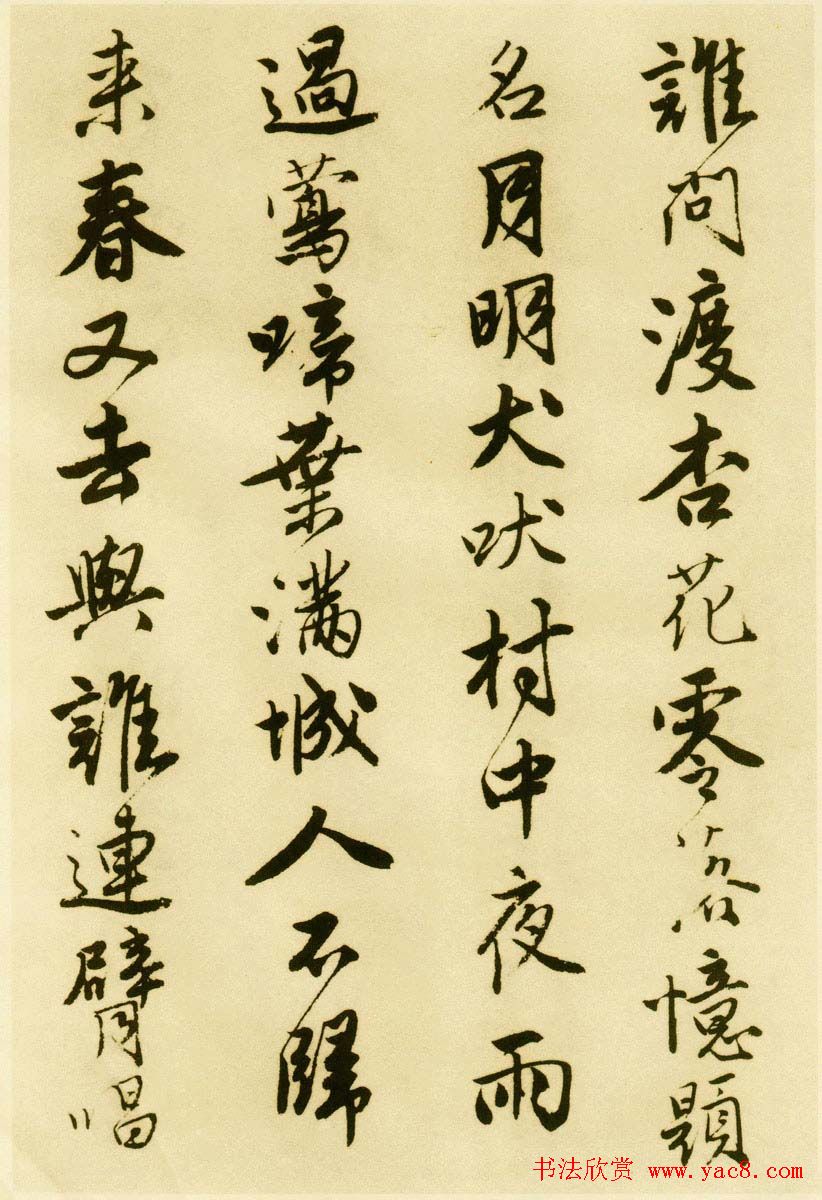 誰問渡杏花零落憶題
名月明犬吠村中夜雨
過鶯啼葉滿城人不歸
来春又去與誰連臂唱
书法欣赏 www.yac8.com